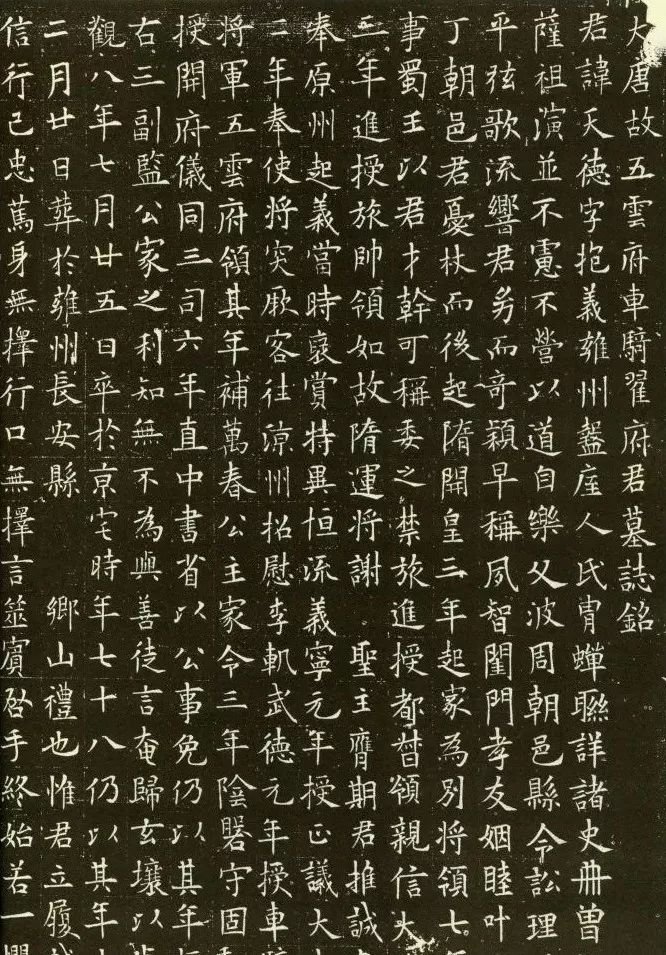 大唐故五雲府車騎翟府君墓誌銘
君諱天德字抱義雍州盩庢人氏冑蟬聯詳諸史冊曾
薩祖演並不憲不營以道自樂父波周朝邑縣令訟理
平弦歌流響君㓜而奇穎早稱夙智閨門孝友姻睦叶
丁朝邑君憂杖而後起隋開皇三年起家為別將領七
事蜀王以君才幹可稱委之禁旅進授都督領親信大
三年進授旅帥領如故隋運將謝 聖主膺期君推誠
奉原州起義當時裒賞特異恒流義寧元年授正議大
二年奉使將突厥客往涼州招慰李軌武德元年授車
將軍五雲府領其年補萬春公主家令三年陰磐守固
授開府儀同三司六年直中書省以公事免仍以其年
右三副監公家之利知無不為與善徒言奄歸玄壤以
觀八年七月廿五日卒於京宅時年七十八仍以其年
二月廿日葬於雍州長安縣 鄉山禮也惟君立履
信行己忠篤身無擇行口無擇言筮賓啓手終始若一